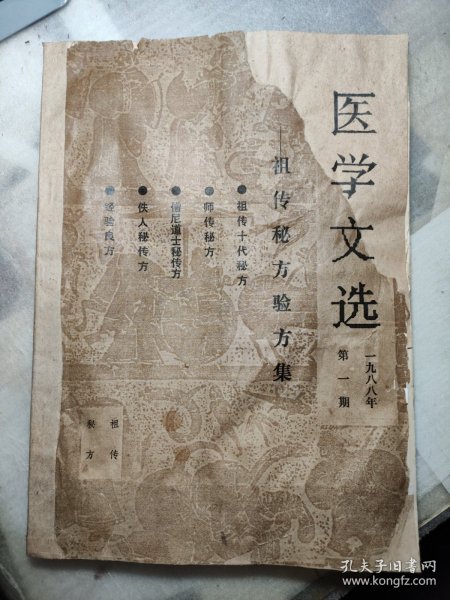 医学文选
一九八八年
第一期
——祖传秘方验方集
●祖传十代秘方
●师传秘方
●僧尼道士秘传方
●佚人秘传方
●经验良方
祖传
秘方
孔夫子旧书网
www.kongfz.com